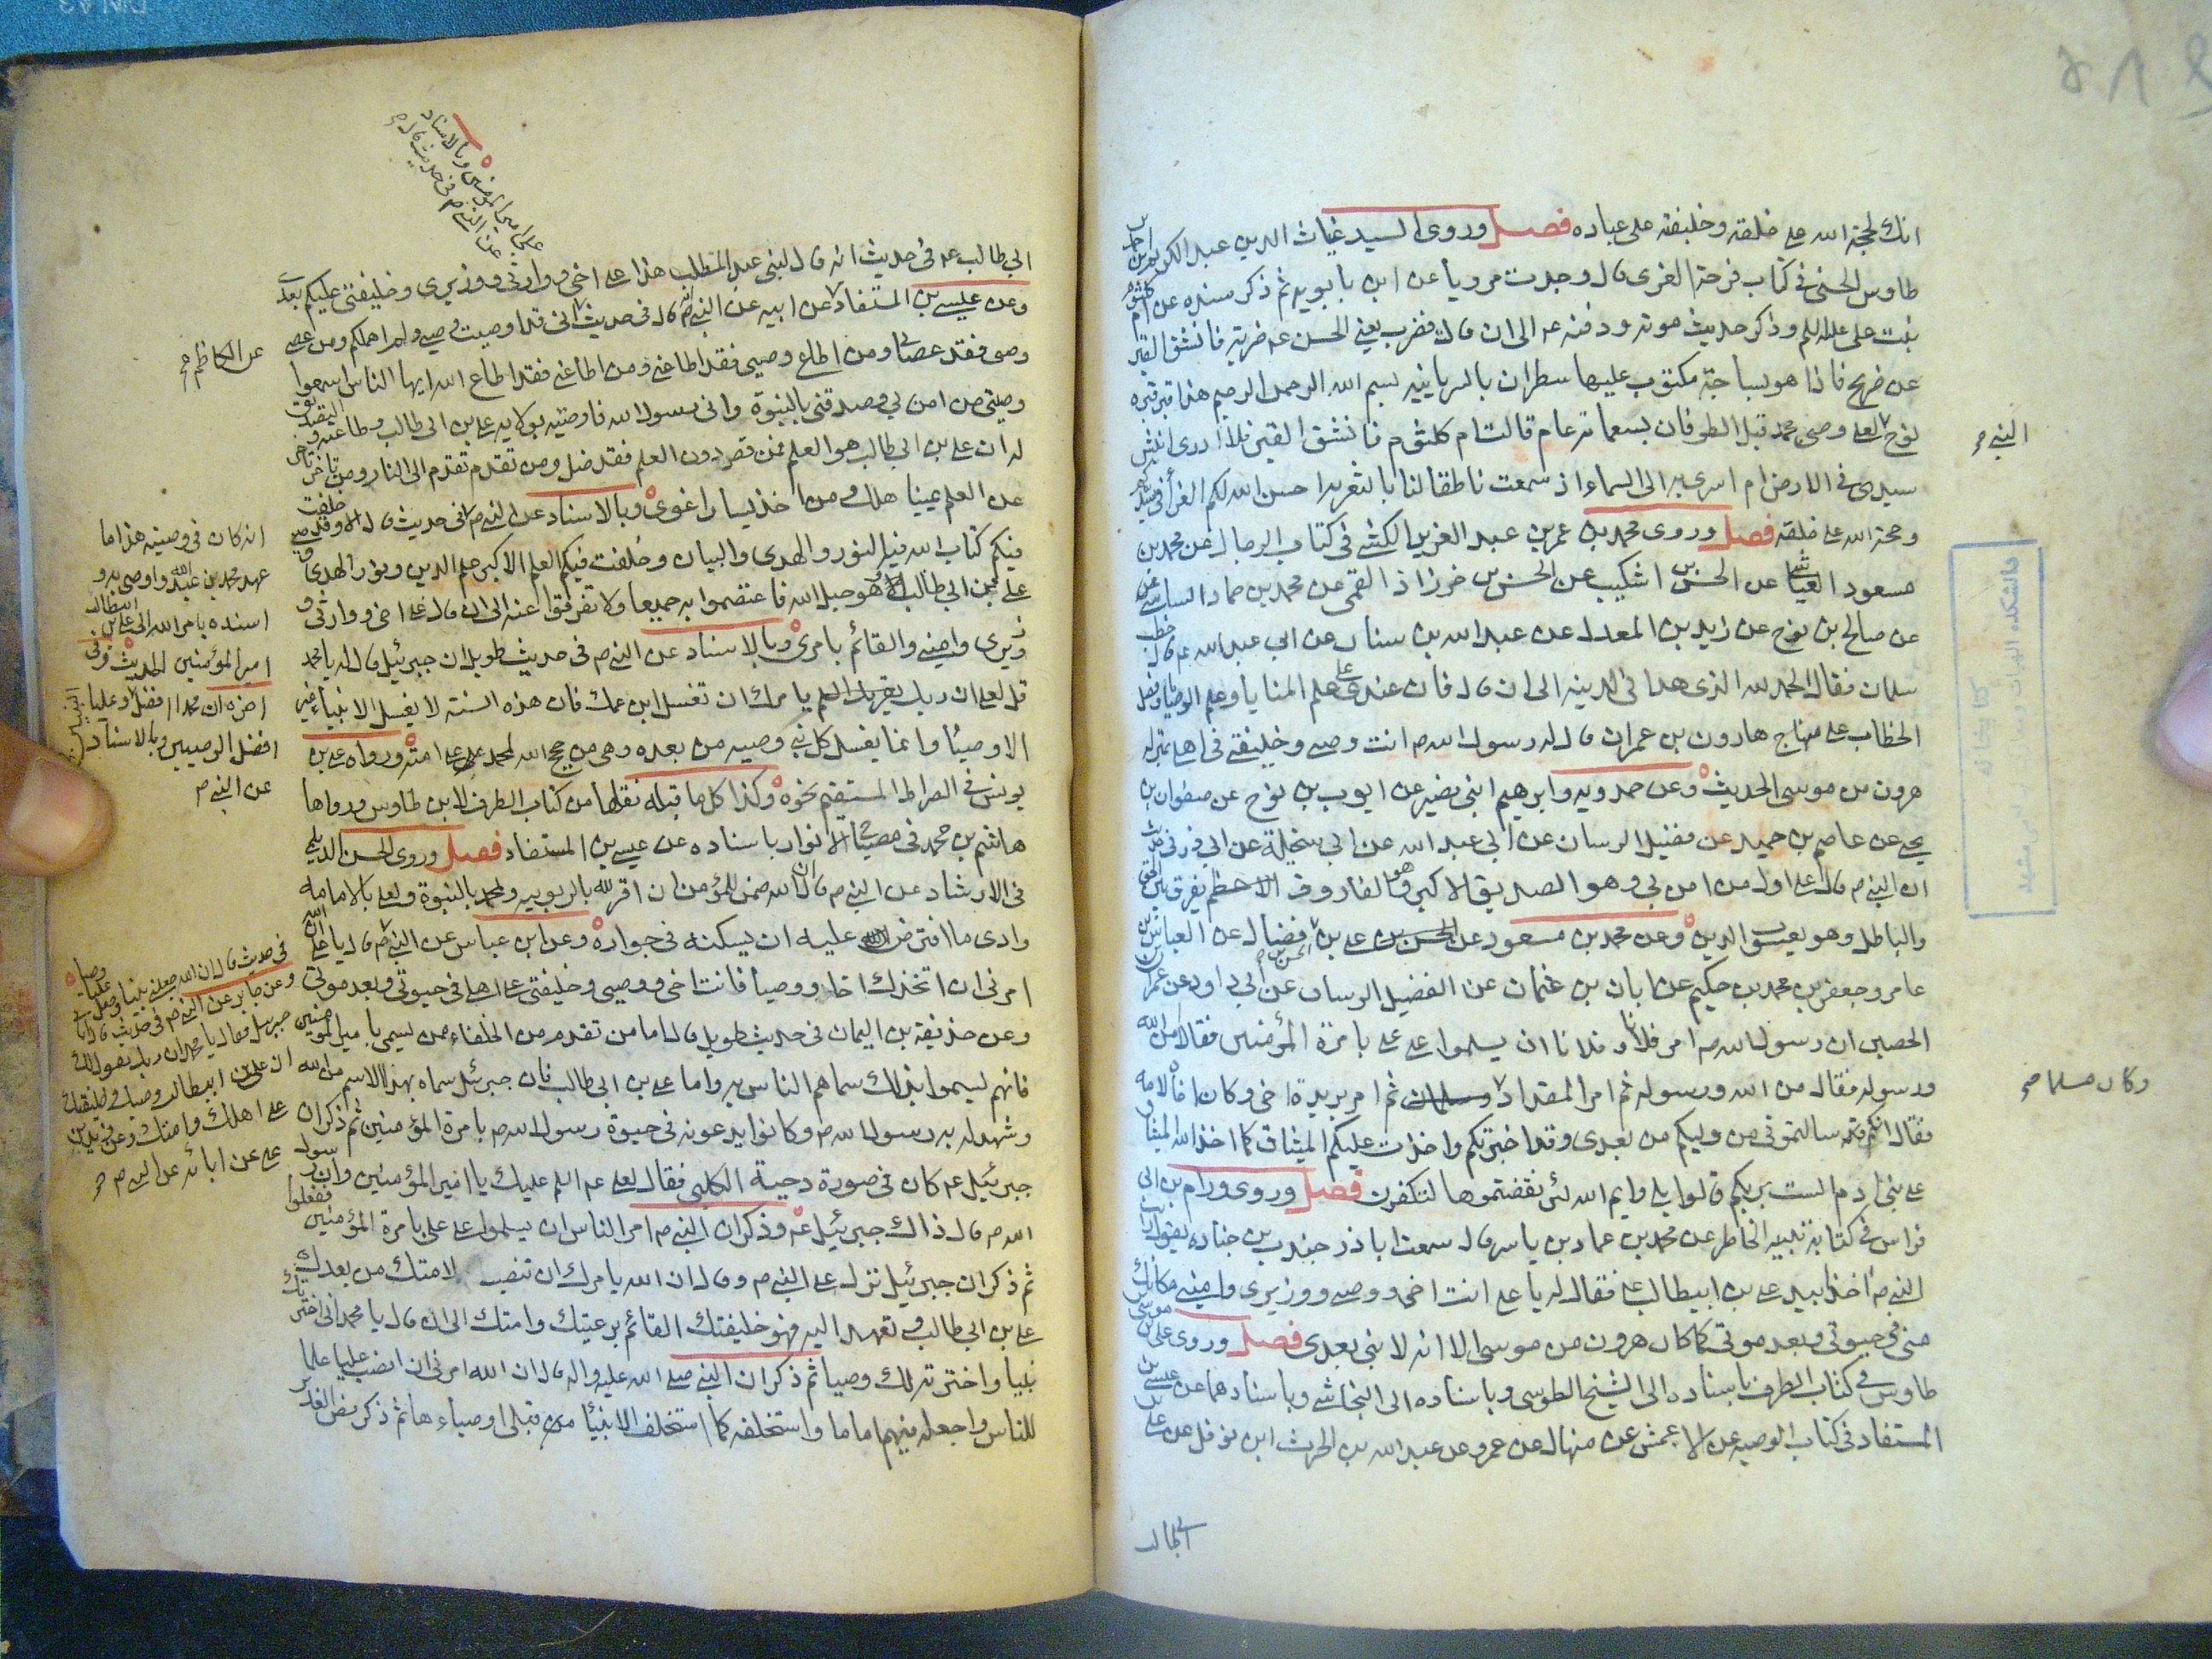 انك لحجة الله على خلقه وخليفته على عباده فصل وروى السيد غياث الدين عبد الكريم بن احمد بن
طاوس الحسنى في كتاب فرحة الغرى قال وجدت مرويا عن ابن بابويه ثم ذكر سنده عن ام كلثوم
بنت على عليه السلم وذكر حديث موته ودفنه عه الى ان قال فضرب يعني الحسن عه ضربة فانشق القبر
عن ضريح فاذا هو بساجة مكتوب عليها سطران بالسريانية بسم الله الرحمن الرحيم هذا قبر قبره
نوح لعلى وصى محمد قبل الطوفان بسبعمائة عام قالت ام كلثوم فانشق القبر فلا ادرى انبش
سيدى في الارض ام اسرى به الى السماء اذ سمعت ناطقا لنا بالتعزية احسن الله لكم العزاء في سيدكم
وحجة الله على خلقه فصل وروى محمد بن عمر بن عبد العزيز الكشى في كتاب الرجال عن محمد بن
مسعود العياشى عن الحسن بن اشكيب عن الحسن بن خرزاذ القمى عن محمد بن حماد الساسى عن
عن صالح بن نوح عن زيد بن المعدل عن عبد الله بن سنان عن ابى عبد الله عه قال خطب
سلمان فقال الحمد لله الذى هدانى لدينه الى ان قال فان عند على علم المنايا وعلم الوصايا وفصل
الخطاب على منهاج هارون بن عمران قال له رسول الله ص انت وصى وخليفتى في اهلى بمنزلة
هرون من موسى الحديث وعن حمدويه وابرهيم ابنى نصير عن ايوب بن نوح عن صفوان بن
يحيى عن عاصم بن حميد عن فضيل الرسان عن ابى عبد الله عن ابى سخيلة عن ابى ذر في حديث
ان النبى ص قال على اول من امن بى وهو الصديق الاكبر وهو الفاروق الاعظم يفرق بين الحق
والباطل وهو يعسوب الدين وعن محمد بن مسعود عن الحسن بن على بن فضال عن العباس بن
عامر وجعفر بن محمد بن حكيم عن ابان بن عثمان عن الفضيل الرسان عن ابى داود عن عمران بن
الحصين ان رسول الله ص امر فلانا وفلانا ان يسلموا على على بامرة المؤمنين فقالا من الله
ورسوله فقال من الله ورسوله ثم امر المقداد وسلمان ثم امر بريدة اخى وكان اخاه لامه
فقال انكم قد سالتمونى من وليكم من بعدى وقد اخبرتكم واخذت عليكم الميثاق كما اخذ الله الميثاق
على بنى ادم الست بربكم قالوا بلى وايم الله لئن نقضتموها لتكفرن فصل وروى ورام بن ابى
فراس في كتابه تنبيه الخاطر عن محمد بن عمار بن ياسر قال سمعت اباذر جندب بن جناده يقول رايت
النبى ص اخذ بيد على بن ابيطالب عه فقال له يا على انت اخى ووصيى ووزيرى وامينى مكانك
منى في حيوتى وبعد موتى كمكان هرون من موسى الا انه لا نبى بعدى فصل وروى على بن موسى بن
طاوس في كتاب الطرف باسناده الى الشيخ الطوسى وباسناده الى النجاشى وباسنادهما عن عيسى بن
المستفاد في كتاب الوصيه عن الاعمش عن منهال عن عمرو عن عبد الله بن الحرث ابن نوفل عن على بن
النبى صح
وكان مسلما صح
ابى طالب
ابى طالب عه في حديث انه قال لبنى عبد المطلب هذا على اخى ووارثى ووزيرى وخليفتى عليكم بعدى
وعن عيسى بن المستفاد عن ابيه عن النبى ص قال فى حديث انى قد اوصيت وصيى ولم اهملكم ومن عصى
وصيى فقد عصانى ومن اطاع وصيى فقد اطاعنى ومن اطاعنى فقد اطاع الله ايها الناس اسمعوا
وصيتى من امن بى وصدقنى بالنبوة وانى رسول الله فاوصيه بولاية على بن ابى طالب وطاعته والتصديق
له ان على بن ابى طالب هو العلم فمن قصر دون العلم فقد ضل ومن تقدم تقدم الى النار ومن تاخر
عن العلم يمينا هلك ومن اخذ يسارا غوى وبالاسناد عن النبى ص في حديث قال الا وقد خلفت
فيكم كتاب الله فيه النور والهدى والبيان وخلفت فيكم العلم الاكبر علم الدين ونور الهدى وصيى
على بن ابى طالب الا وهو حبل الله فاعتصموا به جميعا ولا تفرقوا عنه الى ان قال على اخى ووارثى و
وزيرى وامينى والقائم بامرى وبالاسناد عن النبى ص فى حديث طويل ان جبرئيل قال له يا محمد
قل لعلى ان ربك يقريك السلم يامرك ان تغسل ابن عمك فان هذه السنة لا يغسل الانبياء غير
الاوصياء وانما يغسل كل نبى وصيه من بعده وهى من حجج الله لمحمد على امته ورواه على بن
يونس في الصراط المستقيم نحوه وكذا كل ما قبله نقلها من كتاب الطرف لابن طاوس ورواها
هاشم بن محمد فى مصباح الانوار باسناده عن عيسى بن المستفاد فصل وروى الحسن الديلمى
فى الارشاد عن النبى ص قال ان الله ضمن للمؤمن ان اقر لله بالربوبيه ولمحمد بالنبوة ولعلى بالامامه
وادى ما افترض عليه ان يسكنه فى جواره وعن ابن عباس عن النبى ص قال يا على ان الله
امرنى ان اتخذك اخا ووصيا فانت اخى ووصيى وخليفتى على اهلى فى حيوتى وبعد موتى
وعن حذيفة بن اليمان فى حديث طويل قال اما من تقدم من الخلفاء ممن يسمى بامير المؤمنين
فانهم تسموا بذلك سماهم الناس به واما على بن ابى طالب فان جبرئيل سماه بهذا الاسم من الله
وشهد له به رسول الله ص وكانوا يدعونه فى حيوة رسول الله ص بامرة المؤمنين ثم ذكر ان
جبرئيل عه كان فى صورة دحية الكلبى فقال لعلى عه السلم عليك يا امير المؤمنين وان رسول
الله ص قال ذاك جبرئيل عه وذكر ان النبى ص امر الناس ان يسلموا على على بامرة المؤمنين ففعلوا
ثم ذكر ان جبرئيل نزل على النبى ص وقال ان الله يامرك ان تنصب لامتك من بعدك
على بن ابى طالب وتعهد اليه فهو خليفتك القائم برعيتك وامتك الى ان قال يا محمد انى اخترتك
نبيا واخترته لك وصيا ثم ذكر ان النبى صلى الله عليه واله قال ان الله امرنى ان انصب عليا علما
للناس واجعله فيهم اماما واستخلفه كما استخلف الانبياء من قبلى اوصياءها ثم ذكر نص الغدير
على امير المؤمنين وبالاسناد
عن النبى ص فى حديث قال صح
عن الكاظم صح
انه كان فى وصيته هذا ما
عهد محمد بن عبد الله واوصى به و
اسنده بامر الله الى على بن ابيطالب
امير المؤمنين الحديث وفى
اخره ان محمدا افضل النبيين وعليا
افضل الوصيين وبالاسناد
عن النبى ص
فى حديث قال ان الله جعلنى نبيا وجعل عليا وصيا
وعن جابر عن النبى ص فى حديث قال اتانى
جبرئيل فقال يا محمد ان ربك يقول لك
ان على بن ابيطالب وصيك وخليفتك
على اهلك وامتك وعن زيد بن
على عن ابائه عن النبى ص صح